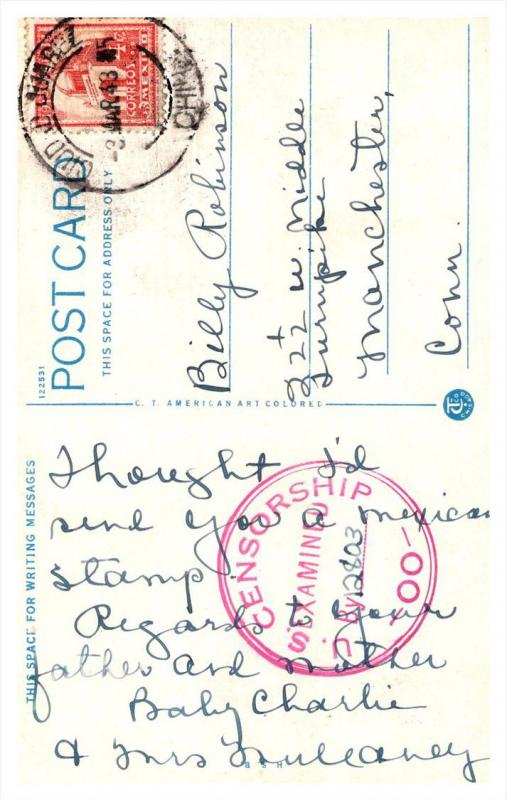 THIS SPACE FOR WRITING MESSAGES
Thought I'd
send you a mexican
stamp
Regards to your
father and mother
Baby Charlie
& Mrs Mullaney
CENSORSHIP
U.S. EXAMINED
By 12803
-OO-
122531
POST CARD
THIS SPACE FOR ADDRESS ONLY
C. T. AMERICAN ART COLORED
CORREOS
MEXICO
CIUDAD JUAREZ
MAR 43
CHIH
Billy Robinson
222 W. Middle
Turnpike
Manchester,
Conn.